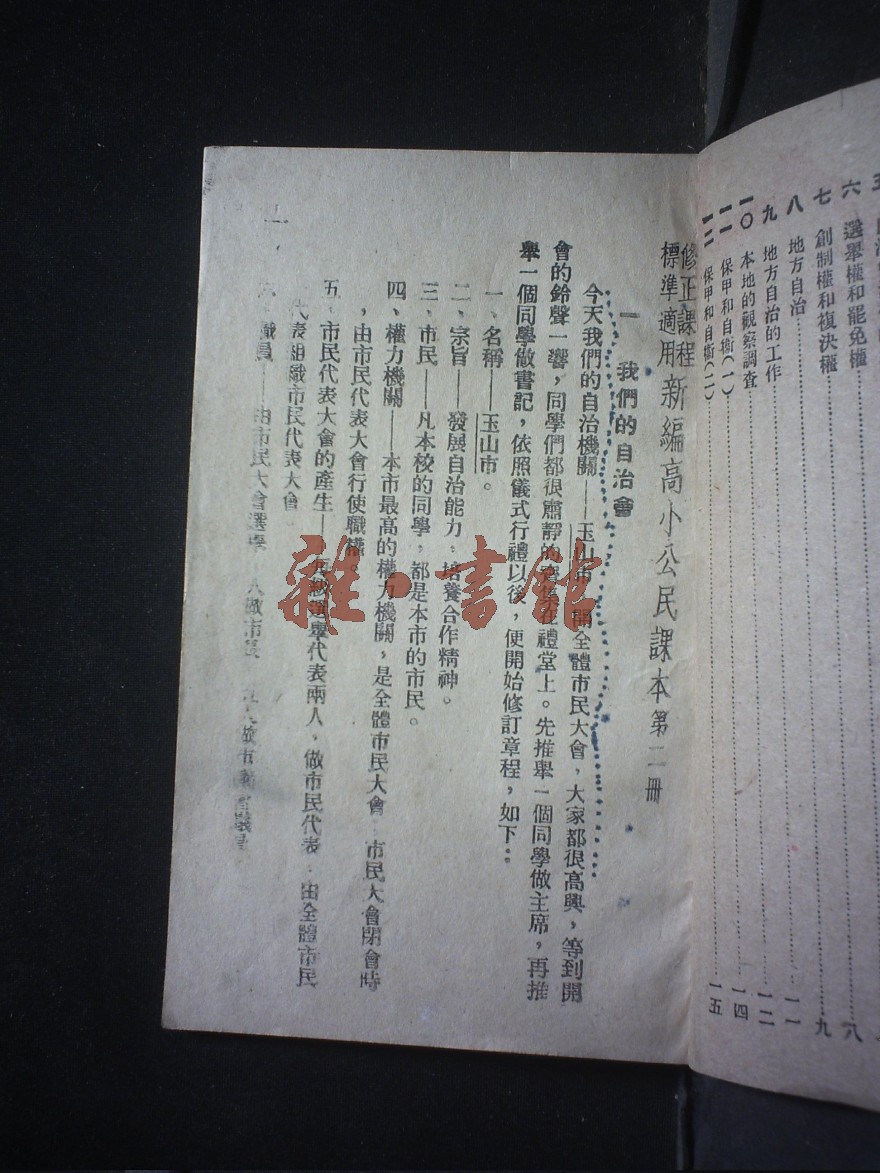 五
六 選舉權和罷免權 八
七 創制權和複決權 九
八 地方自治 一一
九 地方自治的工作 一二
一〇 本地的觀察調查 一四
一一 保甲和自衞(一) 一五
一二 保甲和自衞(二)
修正課程
標準適用 新編高小公民課本第二冊
一 我們的自治會
今天我們的自治機關——玉山市 開全體市民大會,大家都很高興,等到開
會的鈴聲一響,同學們都很肅靜的 在禮堂上。先推舉一個同學做主席,再推
舉一個同學做書記,依照儀式行禮以後,便開始修訂章程,如下:
一、名稱——玉山市。
二、宗旨——發展自治能力,培養合作精神。
三、市民——凡本校的同學,都是本市的市民。
四、權力機關——本市最高的權力機關,是全體市民大會 市民大會閉會時
,由市民代表大會行使職權。
五、市民代表大會的產生—— 級選舉代表兩人,做市民代表 由全體市民
代表組織市民代表大會
職員——由市民大會選舉 人做市長
一
雜·書館